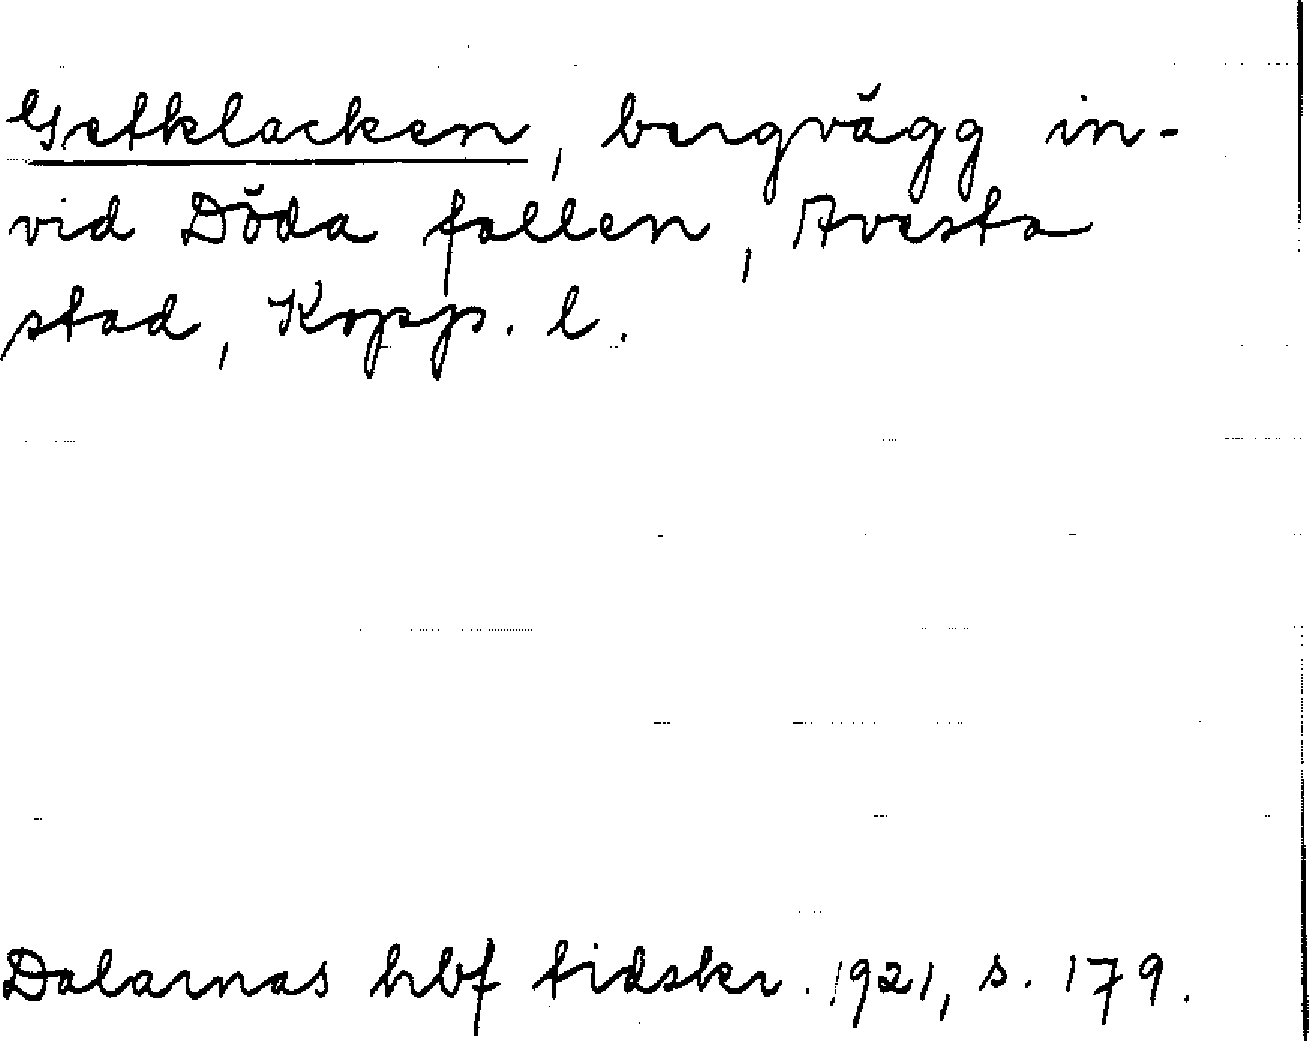 Getklacken, bergvägg in-
vid Döda fallen, Avesta
stad, Kopp. l.
Dalarnas hbf tidskr. 1921, s. 179.